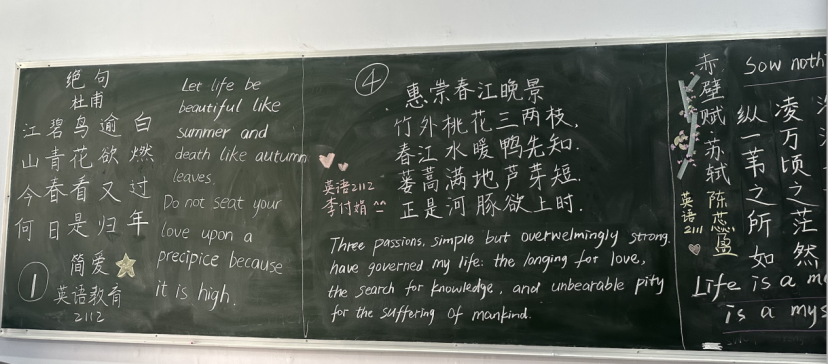 绝句
杜甫
江碧鸟逾白
山青花欲燃
今春看又过
何日是归年
①
简爱
英语教育
2112
Let life be
beautiful like
summer and
death like autumn
leaves.
Do not seat your
love upon a
precipice because
it is high.
④
惠崇春江晚景
竹外桃花三两枝,
春江水暖鸭先知.
蒌蒿满地芦芽短.
正是河豚欲上时.
英语2112
李付娟
Three passions, simple but overwhelmingly strong.
have governed my life: the longing for love,
the search for knowledge, and unbearable pity
for the suffering of mankind.
赤壁赋·苏轼
英语2111
陈蕊盈
Sow noth
纵一苇之所如
凌万顷之茫然
Life is a
is a mys